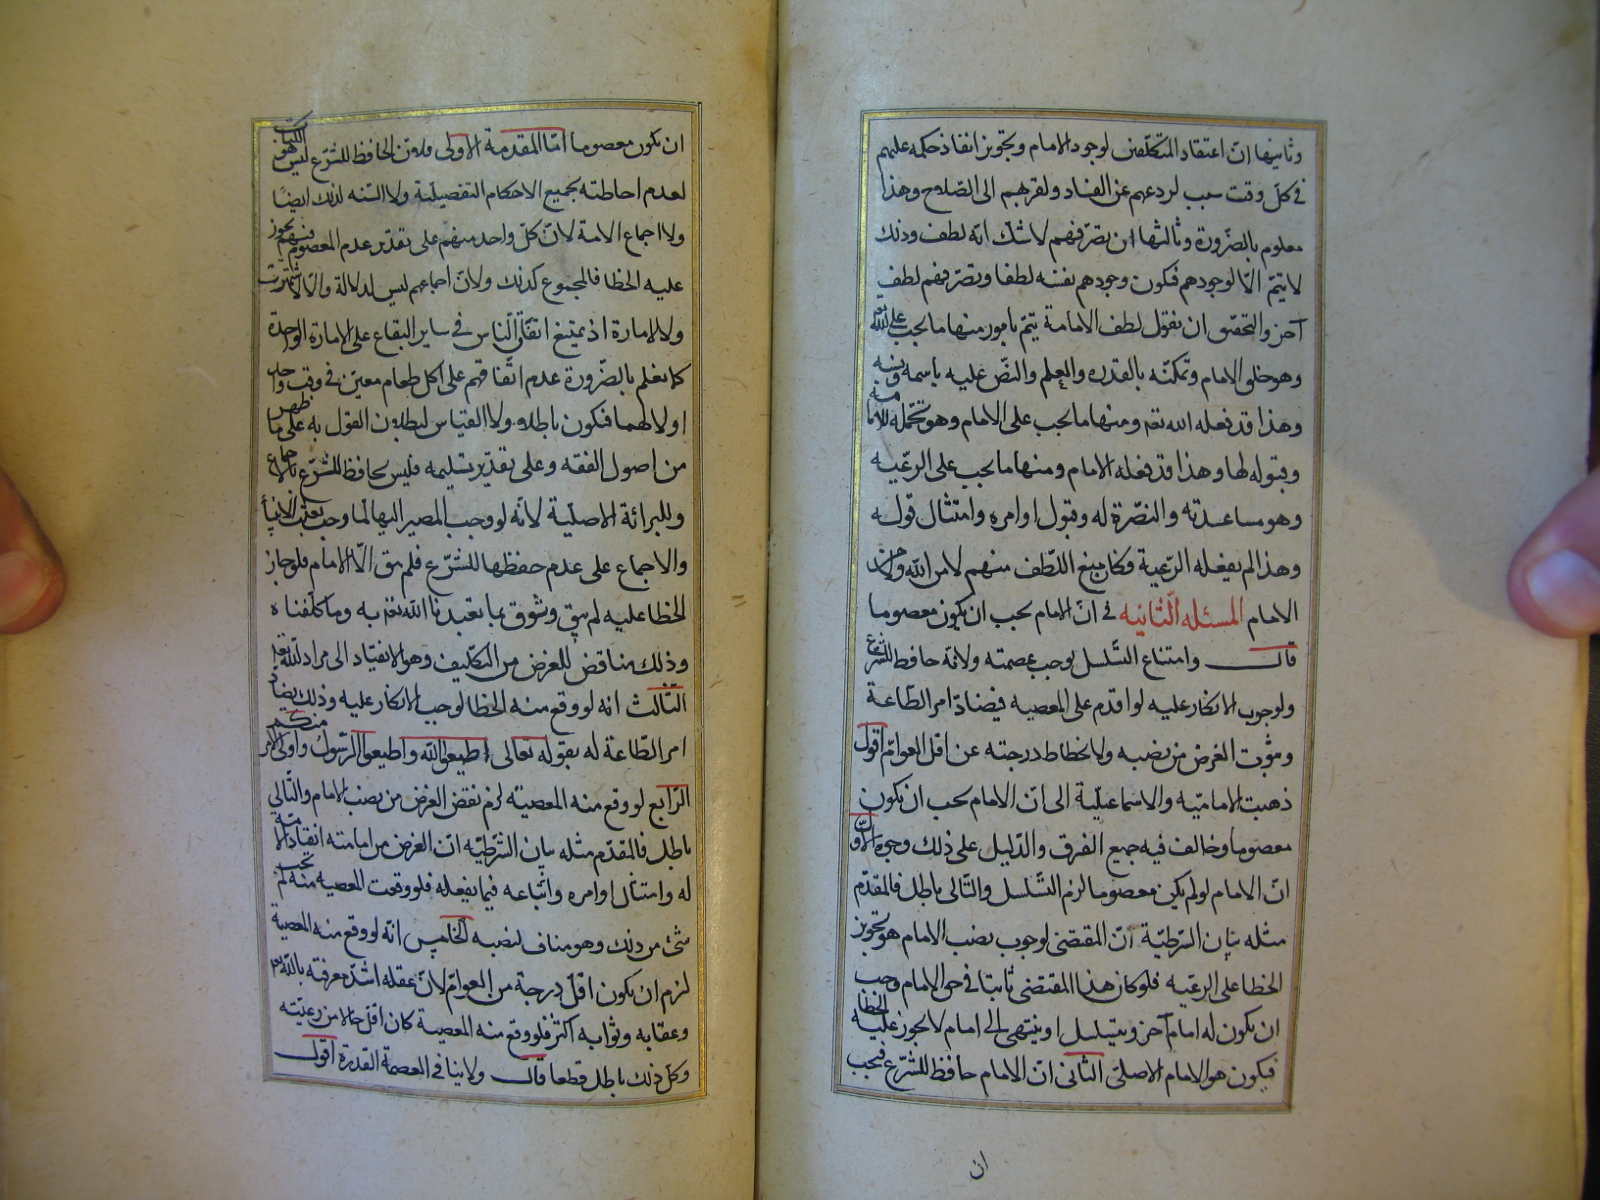 وثانيها انّ اعتقاد المتكلفين لوجود الامام وتجويز انفاذ حكمه عليهم
في كلّ وقت سبب لردعهم عن الفساد ولقربهم الى الصّلاح وهذا
معلوم بالضّرورة وثالثها ان تصرّفهم لا شك انّه لطف وذلك
لا يتمّ الّا لوجودهم فيكون وجودهم نفسه لطفا وتصرّفهم لطف
آخر والتحقيق ان نقول لطف الامامة يتمّ بامور منها ما يجب على الله تع
وهو خلق الامام وتمكّنه بالقدرة والعلم والنصّ عليه باسمه ونسبه
وهذا قد فعله الله تعم ومنها ما يجب على الامام وهو تحمّله للامامة
وقبوله لها وهذا قد فعله الامام ومنها ما يجب على الرعّيه
وهو مساعدته والنصّرة له وقبول اوامره وامتثال قوله
وهذا لم يفعله الرّعية فكان منع اللّطف منهم لا من الله ولا من
الامام المسئله الثّانيه في انّ الامام يجب ان يكون معصوما
قال وامتناع التّسلسل يوجب عصمته ولانّه حافظ للشّرع
ولوجوب الانكار عليه لو اقدم على المعصيه فيضادّ امر الطّاعة
ويفوت الغرض من نصبه ولانحطاط درجته عن اقل العوامّ اقول
ذهبت الاماميّه والاسماعيليّة الى انّ الامام يجب ان يكون
معصوما وخالف فيه جميع الفرق والدّليل على ذلك وجوه الاوّل
انّ الامام لو لم يكن معصوما لزم التّسلسل والتّالى باطل فالمقدّم
مثله بيان الشرطيّة انّ المقتضى لوجوب نصب الامام هو تجويز
الخطا على الرعيّه فلو كان هذا المقتضى ثابتا في حق الامام وجب
ان يكون له امام آخر ويتسلسل او ينتهى الى امام لا يجوز عليه الخطا
فيكون هو الامام الاصلىّ الثّانى انّ الامام حافظ للشّرع فيجب
ان
ان يكون معصوما امّا المقدمة الاولى فلانّ الحافظ للشّرع ليس هو الكتاب
لعدم احاطته بجميع الاحكام التفصيليّة ولا السّنه لذلك ايضًا
ولا اجماع الامة لانّ كلّ واحد منهم على تقدير عدم المعصوم فيهم يجوز
عليه الخطا فالمجموع كذلك ولانّ اجماعهم ليس لدلالة والّا لاشتهرت
ولا لامارة اذ يمتنع اتفاق النّاس في ساير البقاع على الامارة الواحدة
كما نعلم بالضّرورة عدم اتّفاقهم على اكل طعام معيّن في وقت واحد
او لا لهما فيكون باطلا ولا القياس لبطلان القول به على ما ظهر
من اصول الفقه وعلى تقدير تسليمه فليس بحافظ للشّرع بالاجماع
ولا البرائة الاصليّة لانّه لو وجب المصير اليها لما وجب بعثة الانبيآ
والاجماع على عدم حفظها للشّرع فلم يبق الّا الامام فلو جاز
الخطا عليه لم يبق وثوق بما تعبدنا اللّه تعم به وما كلّفناه
وذلك مناقض للغرض من التكّليف وهو الانقياد الى مراد اللّه تع
الثّالث انه لو وقع منه الخطا لوجب الانكار عليه وذلك يضادّ
امر الطّاعة له بقوله تعالى اطيعوا اللّه واطيعوا الرّسول واولى الامر منكم
الرّابع لو وقع منه المعصيّه لزم نقض الغرض من نصب الامام والتّالى
باطل فالمقدّم مثله بيان الشّرطيّه انّ الغرض من امامته انقياد الامّة
له وامتثال اوامره واتّباعه فيما يفعله فلو وقعت المعصيه منه لم يجب
شئ من ذلك وهو مناف لنصبه الخامس انّه لو وقع منه المعصية
لزم ان يكون اقلّ درجة من العوامّ لانّ عقله اشدّ معرفته باللّه تعم
وعقابه وثوابه اكثر فلو وقع منه المعصية كان اقلّ حالا من رعيّته
وكلّ ذلك باطل قطعا قال ولا ينافي العصمة القدرة اقول